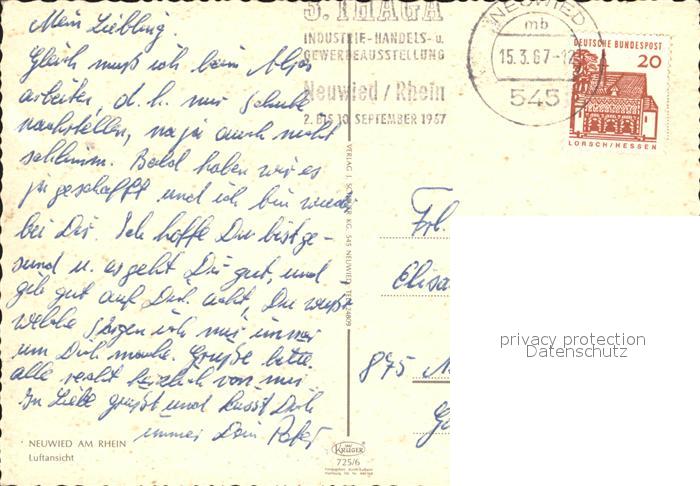 Mein Liebling.
Gleich muß ich beim
arbeiten, d. h. nur Schube
nachstellen, na ja auch nicht
schlimm. Bald haben wir es
ja geschafft und ich bin wieder
bei Dir. Ich hoffe Du bist ge-
sund u. es geht Dir gut, und
gib gut auf Dich acht, Du weißt
welche Sorgen ich mir immer
um Dich mache. Grüße bitte
alle recht herzlich von mir
In Liebe grüßt und küsst Dich
immer Dein Peter
NEUWIED AM RHEIN
Luftansicht
INDUSTRIE-HANDELS- u.
GEWERBEAUSSTELLUNG
Neuwied / Rhein
2. BIS 10. SEPTEMBER 1967
NEUWIED
mb
15.3.67-12
545
DEUTSCHE BUNDESPOST
20
LORSCH/HESSEN
Frl.
Elisa
875
privacy protection
Datenschutz
KRÜGER
725/6